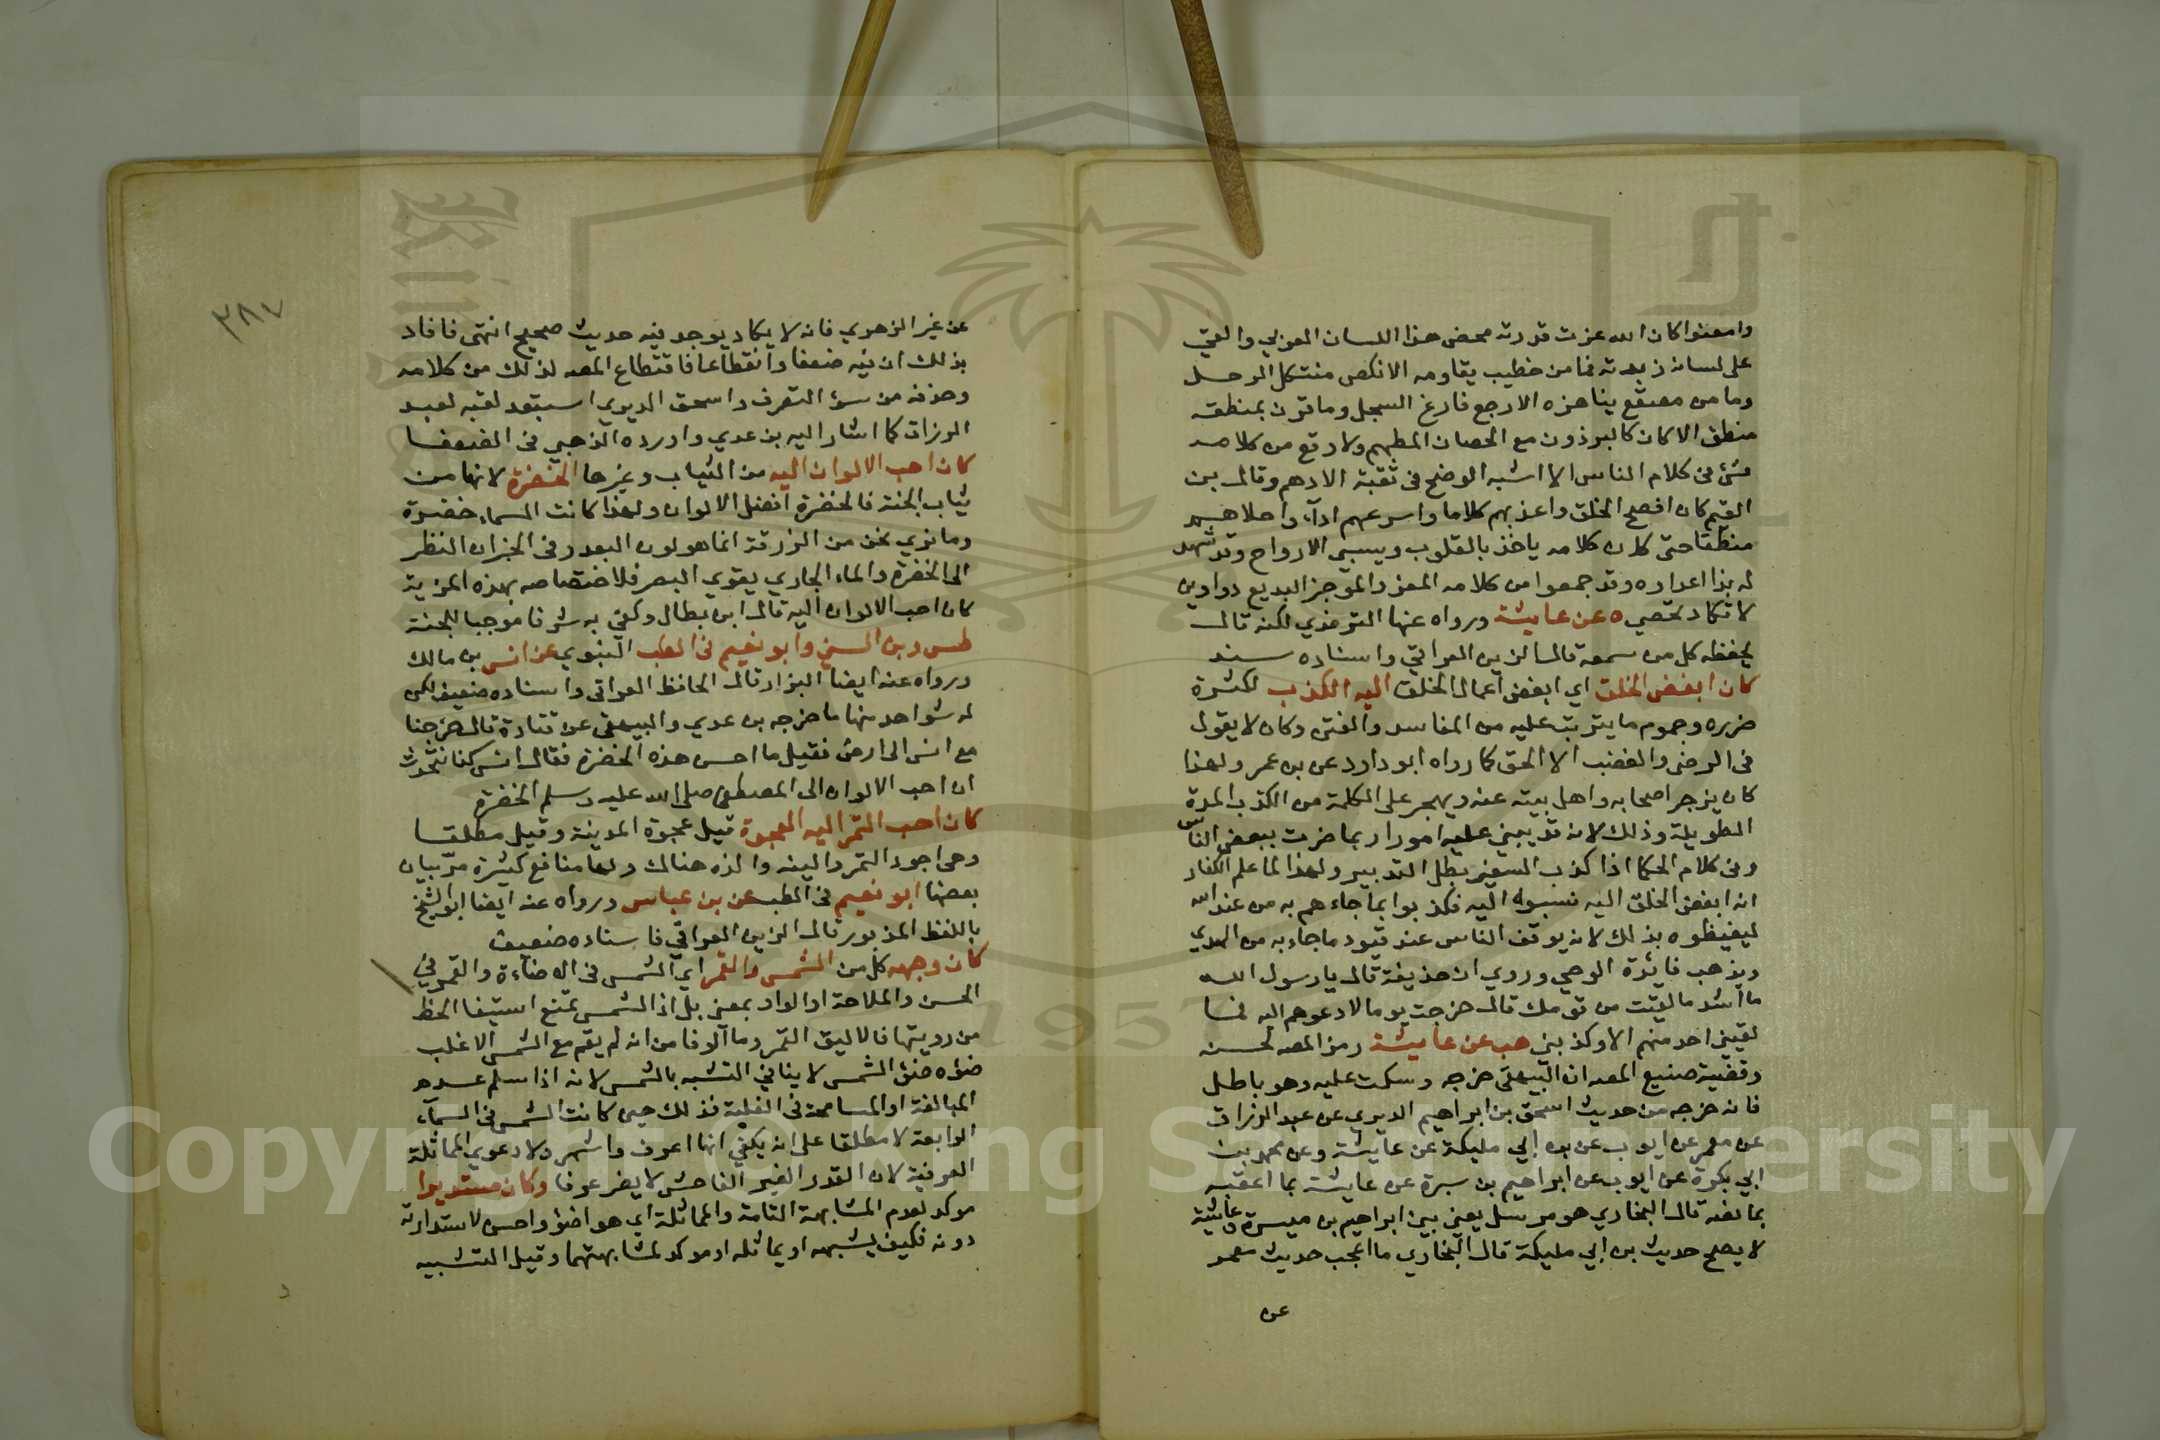 وامعنوا كان الله عزت قدرته محض هذا اللسان العربي والقي
على لسانه زبدته فما من خطيب يقاومه الا نكص متفكك الرحل
وما من مصقع يناهزه الا رجع فارغ السجل وما قرن بمنطقه
منطق الا كان كالبرذون مع الحصان المطهم ولا وقع من كلامه
شئ في كلام الناس الا اشبه الوضح في ثقبة الادهم وقال بن
القيم كان افصح الخلق واعذبهم كلاما واسرعهم اداء واحلاهم
منطقا حتى كان كلامه ياخذ بالقلوب ويسبي الارواح وقد شهد
له بذا اعداوه وقد جمعوا من كلامه المفرد الموجز البديع دواوين
لا تكاد تحصي ه عن عايشة ورواه عنها الترمذي لكنه قال
يحفظه كل من سمعه قال الزين العراقي واسناده سند
كان ابغض الخلق اي ابغض اعمال الخلق اليه الكذب لكثرة
ضرره وجموم ما يترتب عليه من المفاسد والفتن وكان لا يقول
في الرضى والغضب الا الحق كما رواه ابو داود عن بن عمر ولهذا
كان يزجر اصحابه واهل بيته عنه ويهجر على الكلمة من الكذب المدة
الطويلة وذلك لانه قد يبني عليه امورا ربما ضرت ببعض الناس
وفي كلام الحكما اذا كذب السفير بطل التدبير ولهذا لما علم الكفار
انه ابغض الخلق اليه نسبوه اليه فكذبوا بما جاءهم به من عند الله
ليغيظوه بذلك لانه يوقف الناس عند قبول ما جاء به من الهدي
ويذهب فايدة الوحي وروي ان حذيفة قال يا رسول الله
ما اشد ما لقيت من قومك قال خرجت يوما لادعوهم اليه فما
لقيني احد منهم الا وكذبني هب عن عايشة رمز المصه لحسنه
وقضية صنيع المصه ان البيهقي خرجه وسكت عليه وهو باطل
فانه خرجه من حديث اسحق بن ابراهيم الدبري عن عبد الرزاق
عن معمر عن ايوب عن بن ابي مليكة عن عايشة وعن محمد بن
ابي بكرة عن ايوب عن ابراهيم بن سرة عن عايشة بما اعقبه
بما نصه قال البخاري هو مرسل يعني بين ابراهيم بن ميسرة وعايشة
لا يصح حديث بن ابي مليكة قال البخاري ما اعجب حديث معمر
عن
٣٨٧
عن غير الزهري فانه لا يكاد يوجد فيه حديث صحيح انتهى فافاد
بذلك ان فيه ضعفا وانقطاعا فاقتطاع المصه لذلك من كلامه
وحذفه من سوء التصرف واسحق الدبري استبعد لقيه لعبد
الرزاق كما اشار اليه بن عدي واورده الذهبي في الضعفا
كان احب الالوان اليه من الثياب وغيرها الخضرة لانها من
ثياب الجنة فالخضرة افضل الالوان ولهذا كانت السماء خضرة
وما نري نحن من الزرقة انما هو لون البعد وفي الخبر ان النظر
الى الخضرة والماء الجاري يقوي البصر فلاختصاصه بهذه المزية
كان احب الالوان اليه قال ابن بطال وكفى به شرفا موجبا للجنة
طس وبن السني وابو نعيم في الطب النبوي عن انس بن مالك
ورواه عنه ايضا البزار قال الحافظ العراقي واسناده ضعيف لكن
له شواهد منها ما خرجه بن عدي والبيهقي عن قتادة قال خرجنا
مع انس الى ارض فقيل ما احسن هذه الخضرة فقال انس كنا نتحدث
ان احب الالوان الى المصطفى صلى الله عليه وسلم الخضرة
كان احب التمر اليه العجوة قيل عجوة المدينة وقيل مطلقا
وهي اجود التمر والينه والذه هنالك ولها منافع كثيرة مر بيان
بعضها ابو نعيم في الطب عن بن عباس ورواه عنه ايضا ابو الشيخ
باللفظ المذبور قال الزين العراقي فاسناده ضعيف
كان وجهه كل من الشمس والقمر اي الشمس في الاضاءة والقمر في
الحسن والملاحة او الواو بمعنى بل اذ الشمس تمنع استيفا الحظ
من رويتها فالاليق القمر وما الوفا من انه لم يقم مع الشمس الا غلب
ضوه ضوء الشمس لا ينافي التشبه بالشمس لانه اذا سلم عدم
المبالغة او المسامحة في الغلبة فذلك حين كانت الشمس في السماء
الرابعة لا مطلقا على انه يكفي انها اعرف واشهر ولا دعوي المماثلة
العرفية لان القدر الغير الفاحش لا يضر عرفا وكان مستديرا
موكد لعدم المشابهة التامة والمماثلة اي هو اضوء واحسن لاستدارته
دونه فكيف يشبهه او يماثله او موكد لمشابهتهما وقيل التشبيه
Copyright © King Saud University
1957